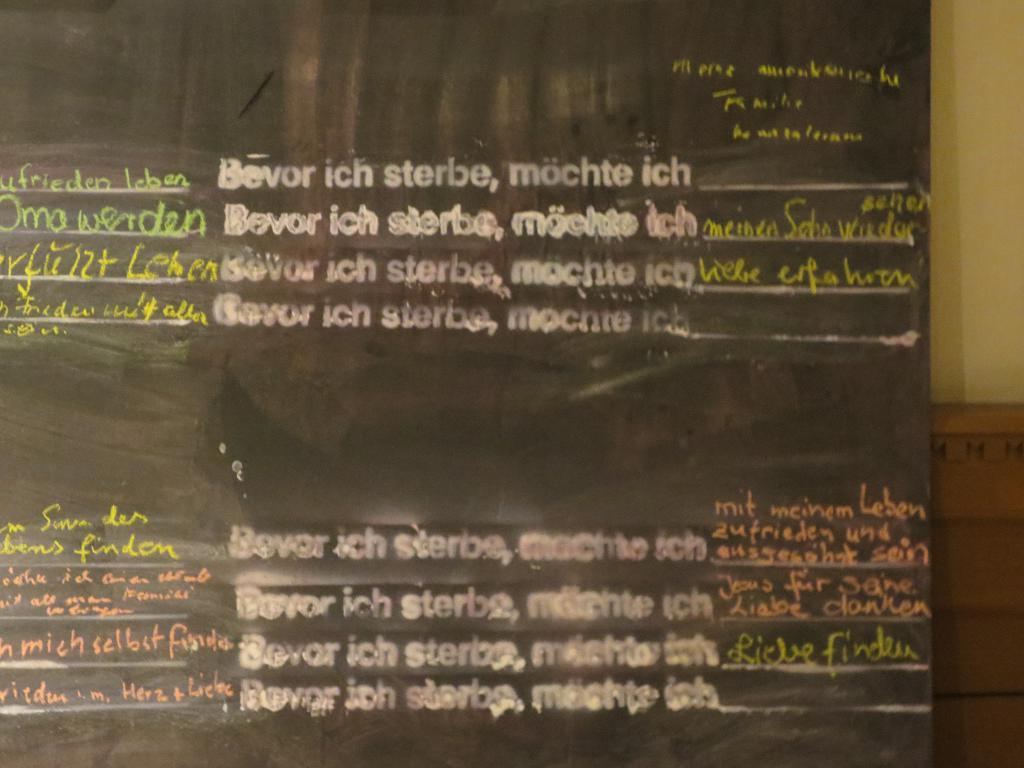 Familie
ufrieden leben Bevor ich sterbe, möchte ich
Oma werden Bevor ich sterbe, möchte ich meinen Sohn wieder sehen
erfüllt Leben Bevor ich sterbe, möchte ich Liebe erfahren
h frieden mit alle Bevor ich sterbe, möchte ich
m Sinn des
bens finden
mit meinem Leben
zufrieden und
Bevor ich sterbe, möchte ich ausgesöhnt sein
Bevor ich sterbe, möchte ich Jesus für seine
Liebe danken
h mich selbst finde Bevor ich sterbe, möchte ich Liebe finden
rieden i.m. Herz + Liebe Bevor ich sterbe, möchte ich